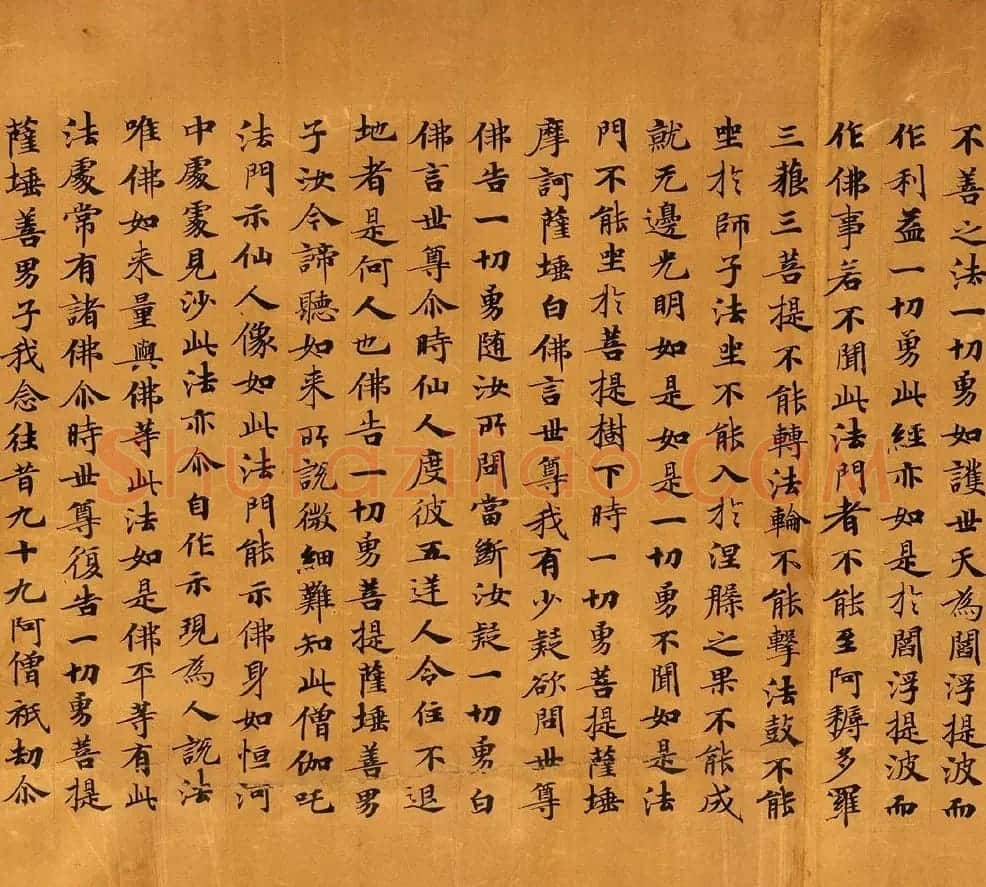 不善之法一切勇如護世天為閻浮提波而
作利益一切勇此經亦如是於閻浮提波而
作佛事若不聞此法門者不能至阿耨多羅
三藐三菩提不能轉法輪不能擊法鼓不能
坐於師子法坐不能入於涅槃之果不能成
就无邊光明如是如是一切勇不聞如是法
門不能坐於菩提樹下時一切勇菩提薩埵
摩訶薩埵白佛言世尊我有少疑欲問世尊
佛告一切勇随汝所問當斷汝疑一切勇白
佛言世尊尒時仙人度彼五逆人令住不退
地者是何人也佛告一切勇菩提薩埵善男
子汝今諦聽如来所說微細難知此僧伽吒
法門示仙人像如此法門能示佛身如恒河
中處處見沙此法亦尒自作示現為人說法
唯佛如来量與佛等此法如是佛平等有此
法處常有諸佛尒時世尊復告一切勇菩提
薩埵善男子我念往昔九十九阿僧祇劫尒
Shufaziliao.COM